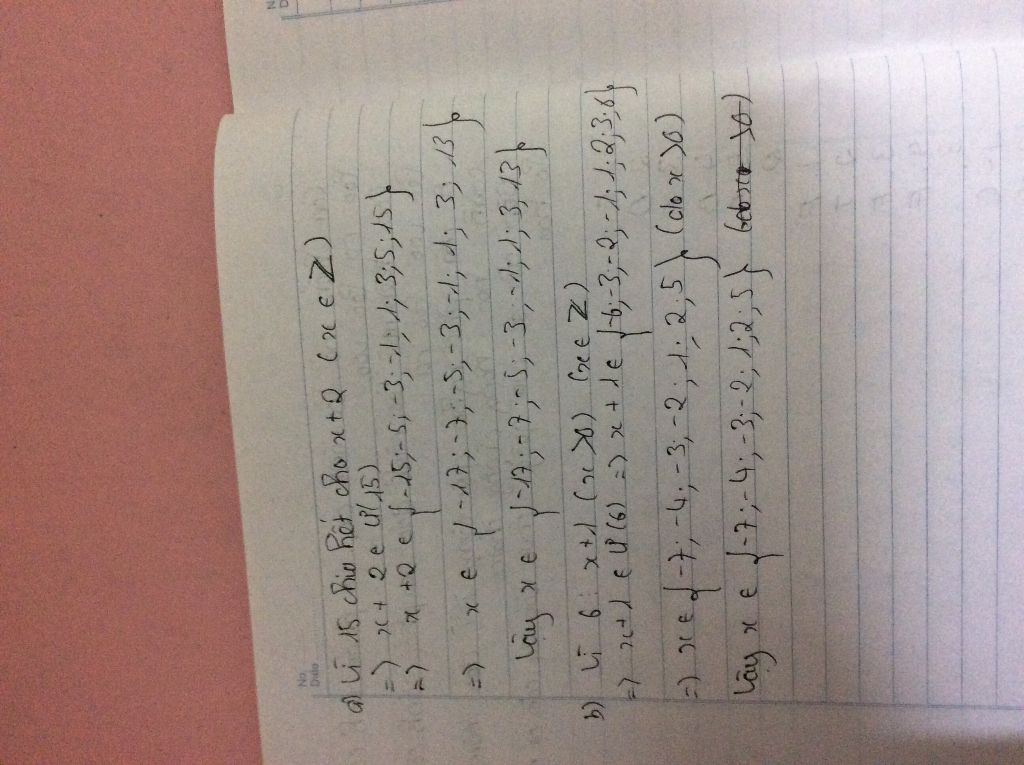 No
Date
a) Vì 15 chia hết cho x+2 (x ∈ Z)
=) x+2 ∈ Ư(15)
=) x+2 ∈ {-15;-5;-3;-1;1;3;5;15}
=) x ∈ {-17;-7;-5;-3;-1;1;3;13}
Vậy x ∈ {-17;-7;-5;-3;-1;1;3;13}
b) Vì 6 ⋮ x+1 (x>0) (x∈Z)
=) x+1 ∈ Ư(6) =) x+1 ∈ {-6;-3;-2;-1;1;2;3;6}
=) x ∈ {-7;-4;-3;-2;1;2;5} (do x>0)
Vậy x ∈ {-7;-4;-3;-2;1;2;5}